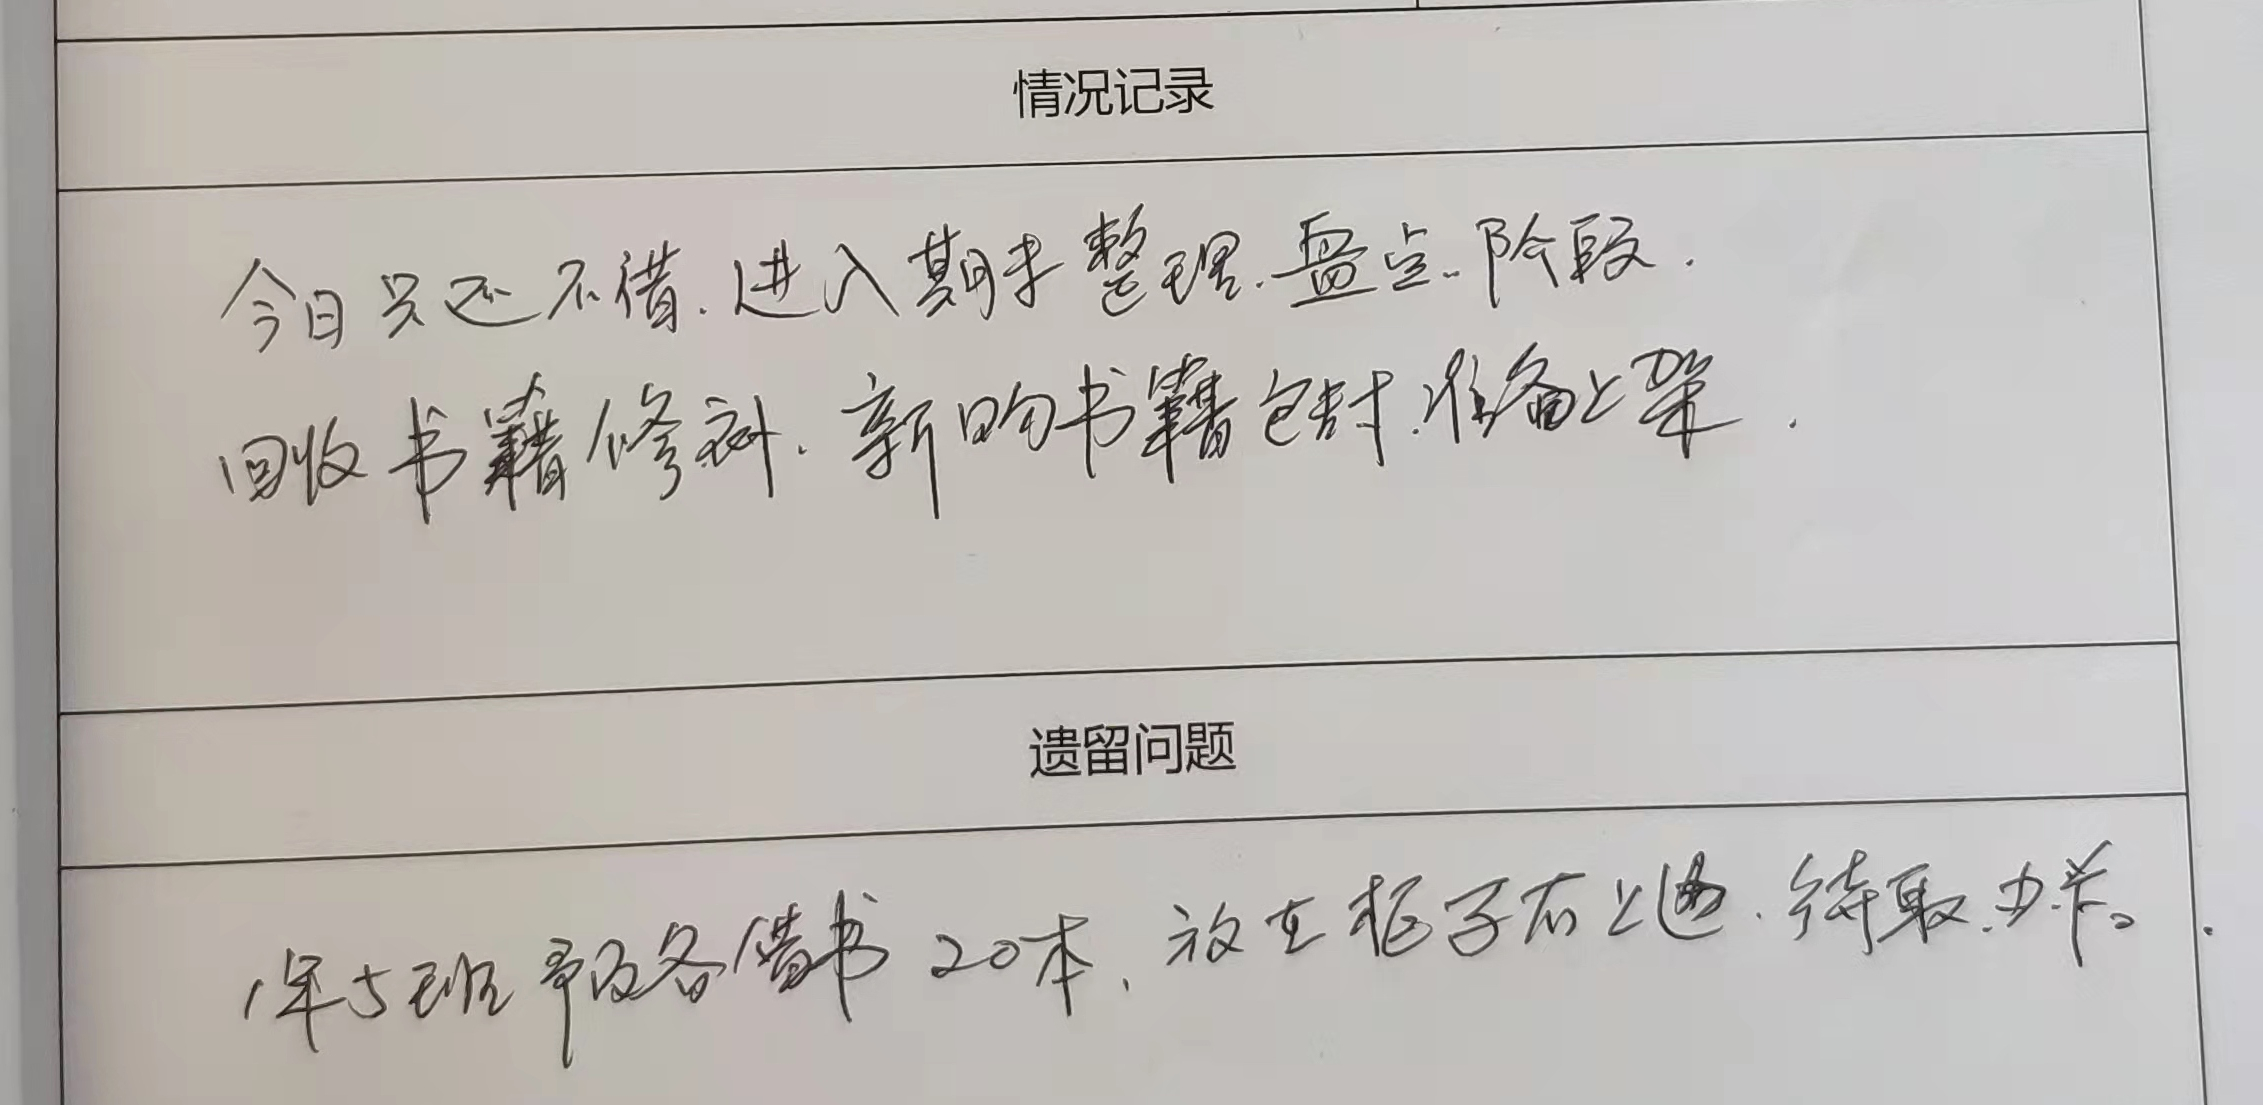 情况记录
今日只还不借.进入期末整理.盘点.阶段.
回收书籍修补.新购书籍包封.准备上架.
遗留问题
1年5班 预备借书20本,放在柜子右上边.待取.办卡。